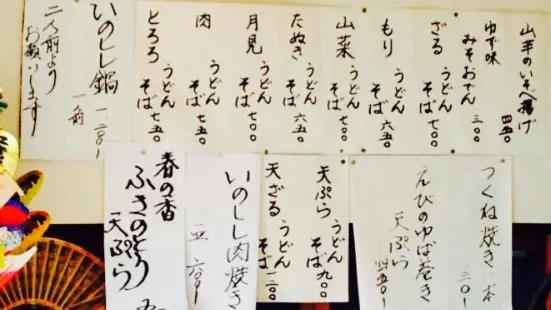 山芋のいそべ揚げ
四五〇
ゆず味
みそおでん
三〇〇
ざる
うどん
そば
七〇〇
もり
うどん
そば
六五〇
山菜
うどん
そば
七〇〇
たぬき
うどん
そば
六五〇
月見
うどん
そば
七〇〇
肉
うどん
そば
七五〇
とろろ
うどん
そば
七五〇
いのしし鍋
一人前
二人前より
お願いします
つくね焼き 一本
三〇一
えびのゆば巻き
天ぷら
四五〇一
天ぷら
うどん
そば
九〇〇
天ざる
うどん
そば
いのしし肉焼き
春の香
ふきのとう
天ぷら